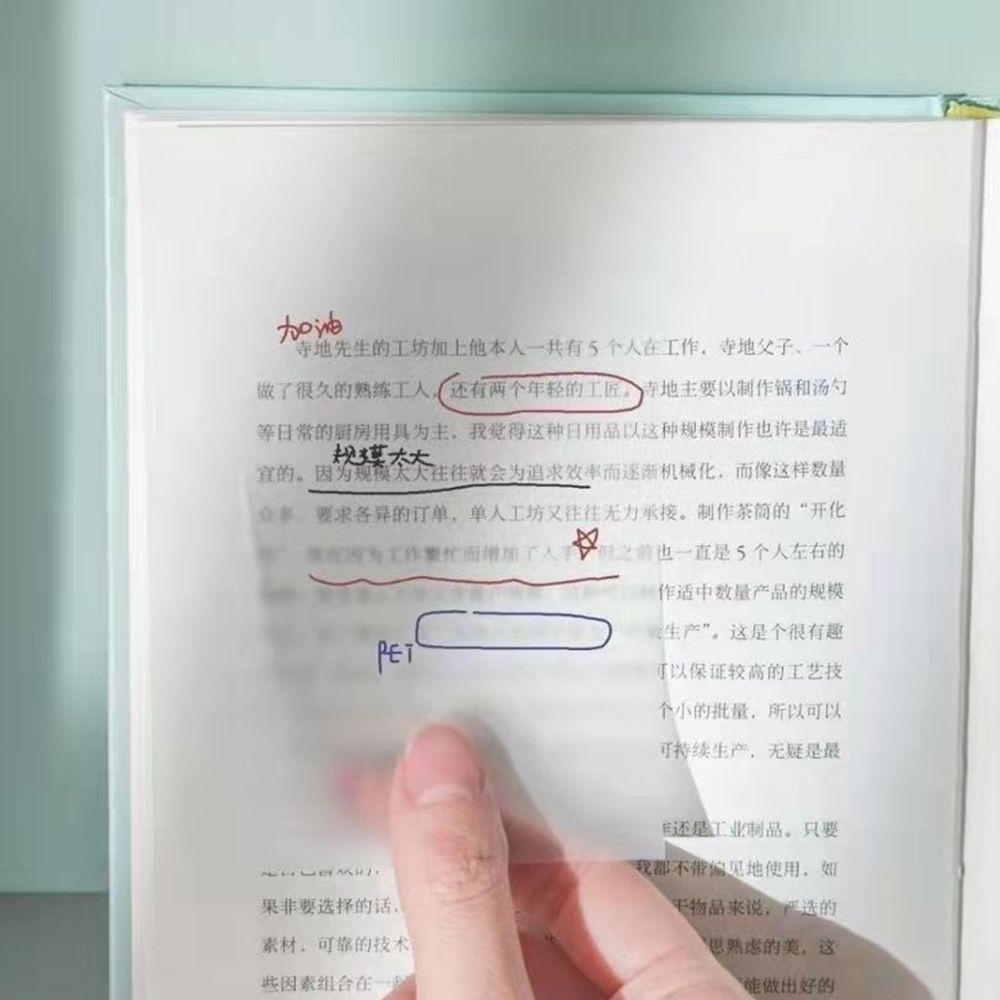 加油
寺地先生的工坊加上他本人一共有5个人在工作，寺地父子、一个
做了很久的熟练工人，还有两个年轻的工匠。寺地主要以制作锅和汤勺
等日常的厨房用具为主，我觉得这种日用品以这种规模制作也许是最适
规模太大
宜的。因为规模太大往往就会为追求效率而逐渐机械化，而像这样数量
众多、要求各异的订单，单人工坊又往往无力承接。制作茶筒的“开化
现在因为工作繁忙而增加了人手，但之前也一直是5个人左右的
作适中数量产品的规模
生产”。这是个很有趣
PET
可以保证较高的工艺技
个小的批量，所以可以
可持续生产，无疑是最
还是工业制品。只要
我都不带偏见地使用，如
果非要选择的话，于物品来说，严选的
素材，可靠的技术思熟虑的美，这
些因素组合在一起能做出好的